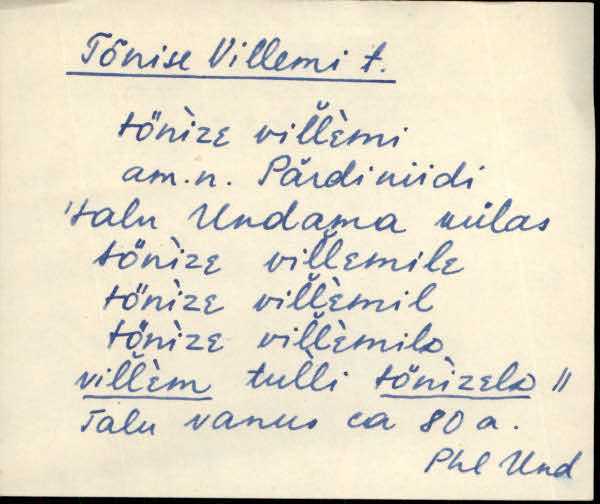 Tõnise Villemi t.
tő̀nìze vil̆l̆èmi
am.n. Pärdiniidi
'talu Undama külas
tő̀nìze vil̆l̆emile
tő̀nìze vil̆l̆èmil
tő̀nìze vil̆l̆èmilə
vil̆l̆èm tuĺli tő̀nìzelə"
Talu vanus ca 80 a.
Phl Und